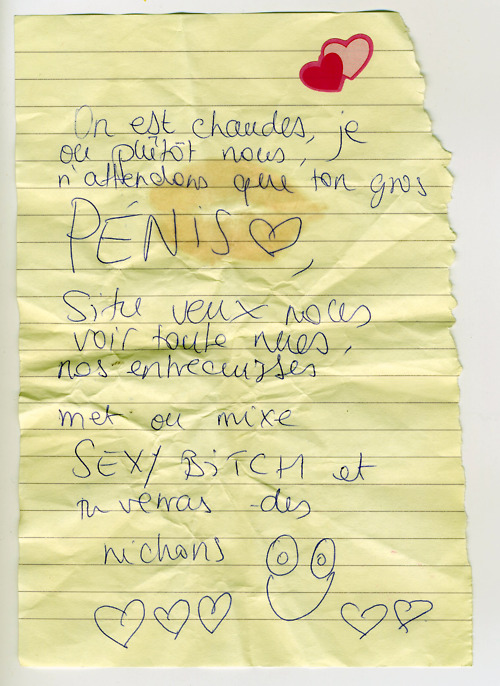 On est chaudes, je
ou plutôt nous,
n'attendons que ton gros
PÉNIS
Si tu veux nous
voir toute nues,
nos entrecuisses
met ou mixe
SEXY BITCH et
tu verras des
nichons